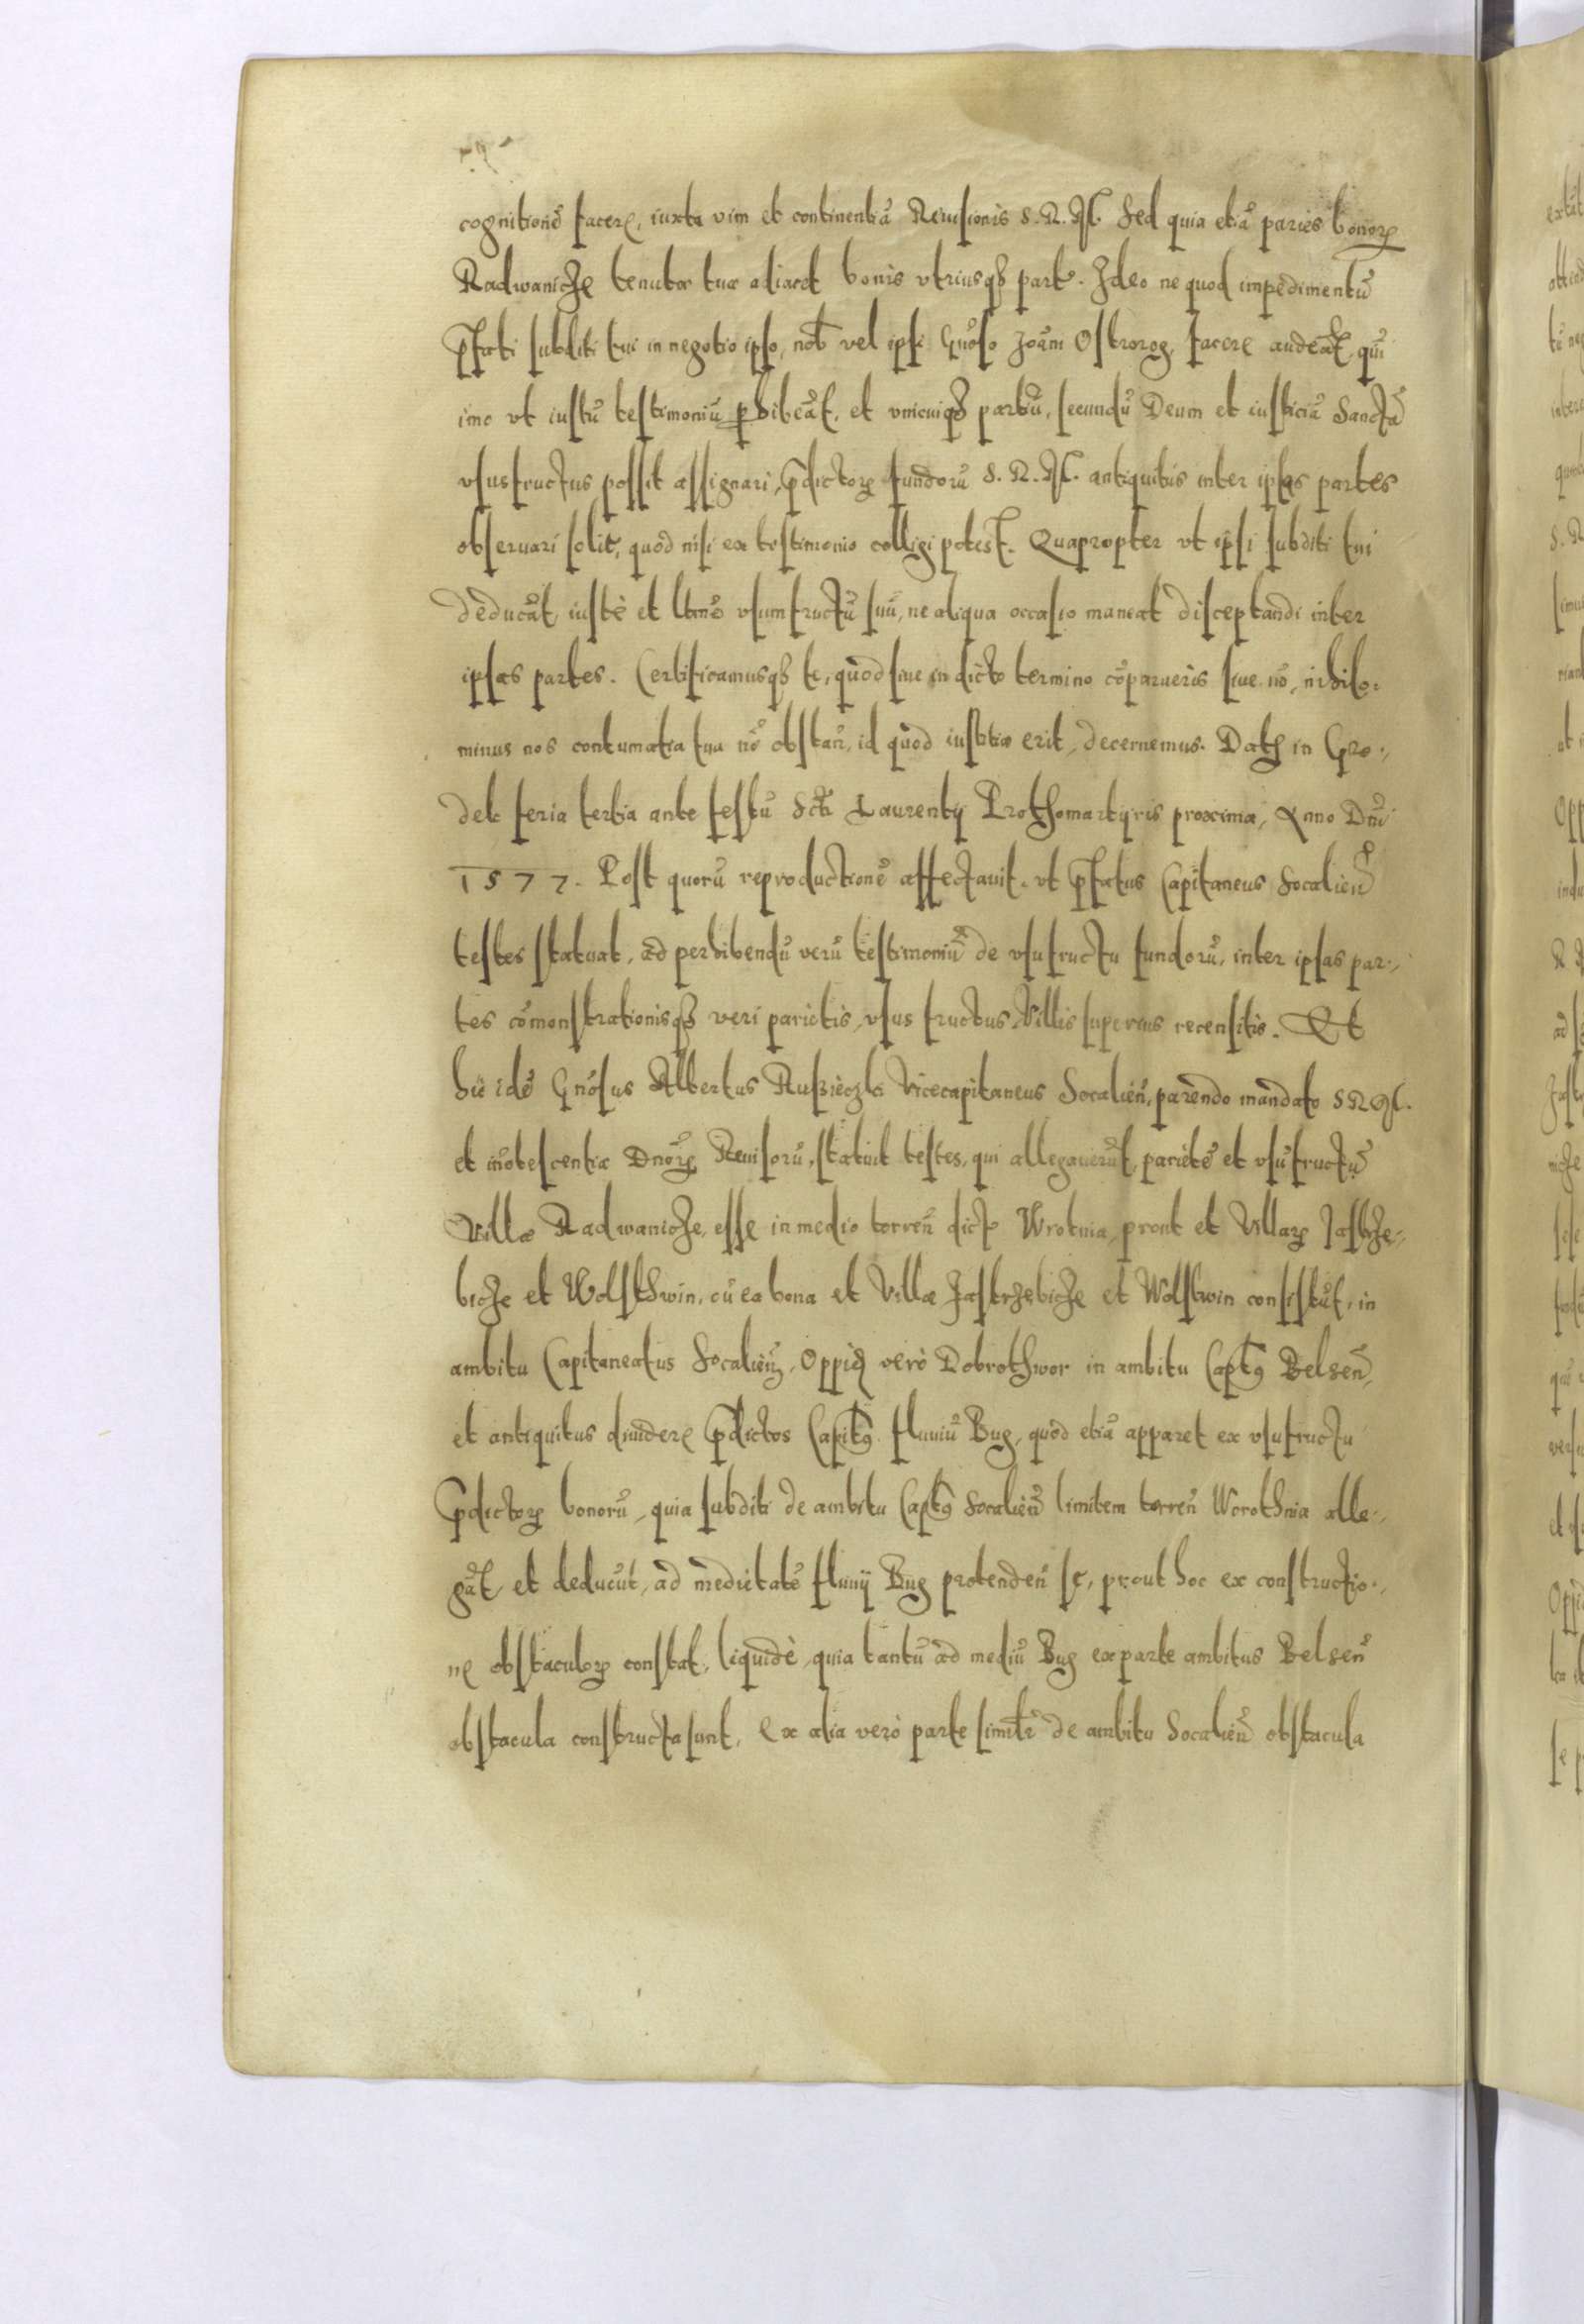 cognitionē facere, iuxta vim et continentiā Reuisionis S. R. M. Sed quia etiā paries bonorꝝ
Radwanicze tenutæ tuæ adiacet bonis vtriusqꝫ part. Ideo ne quod impedimentū
p̄fati subditi tui in negotio ipso, nob vel ipsi Gnōso Joān Ostrorog, facere audeāt, quī
imo vt iustū testimoniū ꝑhibeāt, et vnicuiqꝫ partiū, secundū Deum et iusticiā Sanctā
vsusfructus possit assignari, p̄dictorꝝ fundorū S. R. M. antiquitus inter ipsas partes
obseruari solit, quod nisi ex testimonio colligi potest. Quapropter vt ipsi subditi tui
deducāt iustè et ltimē vsumfructū suū, ne aliqua occasio maneat disceptandi inter
ipsas partes. Certificamusqꝫ te, quòd siue in dicto termino cōparueris siue nō, nihilo-
minus nos contumatia tua nō obstan̄, id quod iustitiæ erit, decernemus. Dat in Gro-
dek feria tertia ante festū Scti Laurentij Prothomartyris proxima, Anno Dn̄i
1577. Post quorū reproductionē affectauit, vt p̄fatus Capitaneus Socalien̄
testes statuat, ad perhibendū verū testimoniū de vsufructu fundorū, inter ipsas par-
tes cōmonstrationisqꝫ veri parietis, vsus fructus Villis superius recensitis. Et
hic idē Gnōsus Albertus Rusieczki Vicecapitaneus Socalien̄, parendo mandato S R M.
et in̄otescentiæ Dnōrꝝ Reuisorū, statuit testes, qui allegauerūt, parietē et vsūfructū
Villæ Radwanicze, esse in medio torren̄ dict Wrotnia, prout et Villarꝝ Jastrze-
bicze et Wolsthwin, cū ea bona et Villæ Jastrzebicze et Wolstwin consistūt, in
ambitu Capitaneatus Socalien̄, Oppid verò Dobrothwor in ambitu Captꝰ Belsen̄,
et antiquitus diuidere p̄dictos Capitꝰ fluuiū Bug, quòd etiā apparet ex vsufructu
p̄dictorꝝ bonorū, quia subditi de ambitu Captꝰ Socalien̄ limitem torren̄ Worothnia alle-
gāt, et deducūt, ad medietatē fluuij Bug protenden̄ se, prout hoc ex constructio-
ne obstaculorꝝ constat, liquidè, quia tantū ad mediū Bug ex parte ambitus Belsen̄
obstacula constructa sunt, Ex alia verò parte similr̄ de ambitu Socalien̄ obstacula